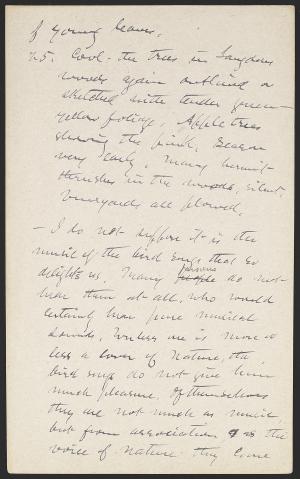 of young leaves.
25. Cool - the trees in Langdons
woods again outlined or
sketched with tender green-
yellow foliage, Apple trees
showing the pink. Season
very early, many hermit-
thrushes in the woods, silent.
vineyards all plowed.
- I do not suppose it is the
music of the bird songs that so
delights us. Many people persons do not
hear them at all, who would
certainly hear pure musical
sounds. Unless one is more or
less a lover of Nature, the
bird songs do not give him
much pleasure. Of themselves
they are not much as music,
but from association & as the
voice of nature they come